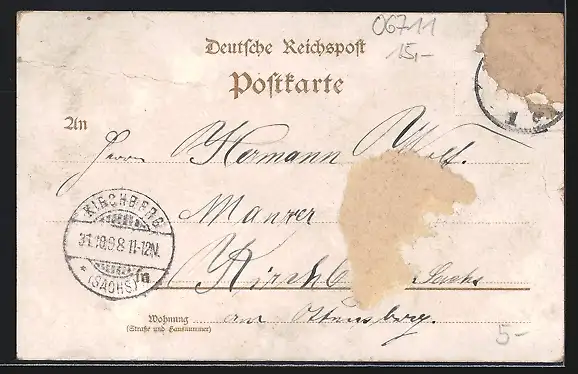 06711
15,-
Deutsche Reichspost
Postkarte
An
Herrn Hermann Wolf.
Maurer
Kirchb Sachs
Wohnung am Ottensberg.
(Straße und Hausnummer)
KIRCHBERG
31.10.98 11-12N.
* (SACHS)
5-